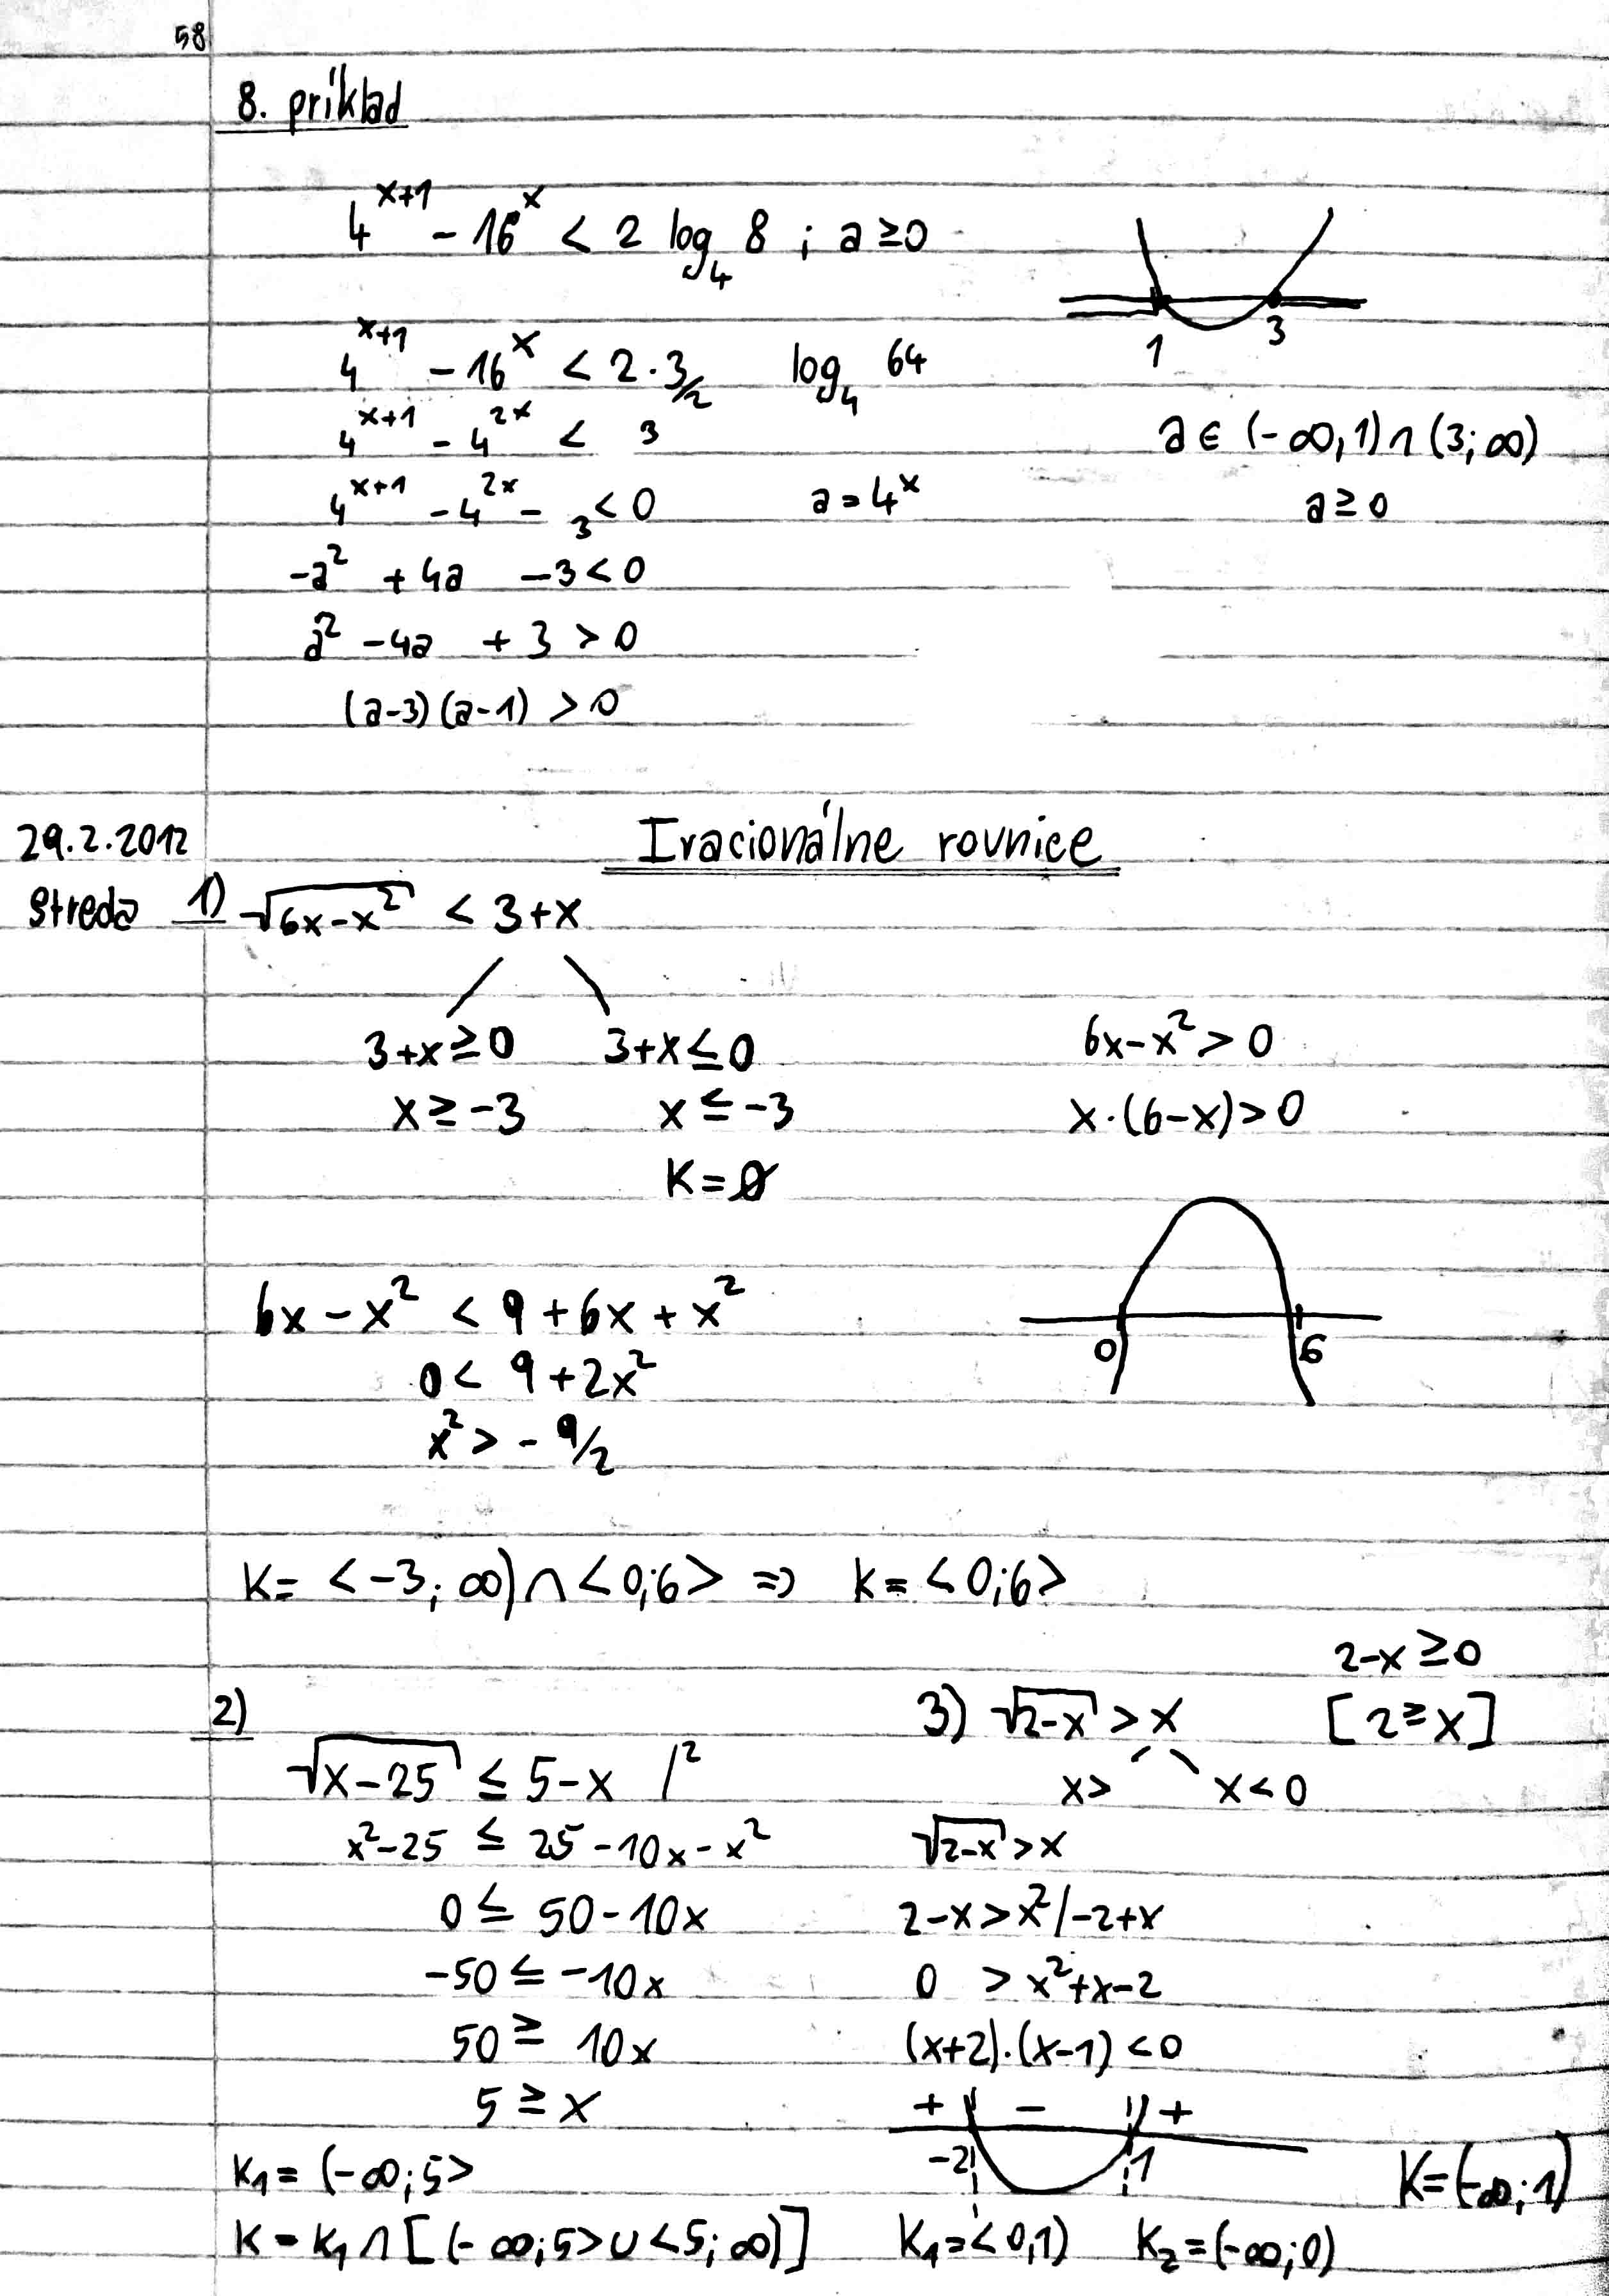 58
8. príklad
4^{x+1} - 16^x < 2 log_4 8 ; a ≥ 0
4^{x+1} - 16^x < 2 · 3/2    log_4 64
4^{x+1} - 4^{2x} < 3
4^{x+1} - 4^{2x} - 3 < 0    a = 4^x
-a² + 4a - 3 < 0
a² - 4a + 3 > 0
(a-3)(a-1) > 0
1    3
a ∈ (-∞,1) ∩ (3;∞)
a ≥ 0
29.2.2012    Iracionálne rovnice
Streda    1) √(6x-x²) < 3+x
3+x ≥ 0    3+x ≤ 0    6x-x² > 0
x ≥ -3    x ≤ -3    x·(6-x) > 0
K = ∅
0    6
6x - x² < 9 + 6x + x²
0 < 9 + 2x²
x² > - 9/2
K = <-3; ∞) ∩ <0;6> => K = <0;6>
2)
√(x-25) ≤ 5-x /²
x²-25 ≤ 25-10x-x²
0 ≤ 50-10x
-50 ≤ -10x
50 ≥ 10x
5 ≥ x
K1 = (-∞;5>
K = K1 ∩ [(-∞;5> ∪ <5;∞)]
2-x ≥ 0
3) √(2-x) > x    [2 ≥ x]
x>    x<0
√(2-x) > x
2-x > x² /-2+x
0 > x²+x-2
(x+2).(x-1) < 0
+ - +
-2    1
K = (-∞;1)
K1 = <0,1)    K2 = (-∞;0)